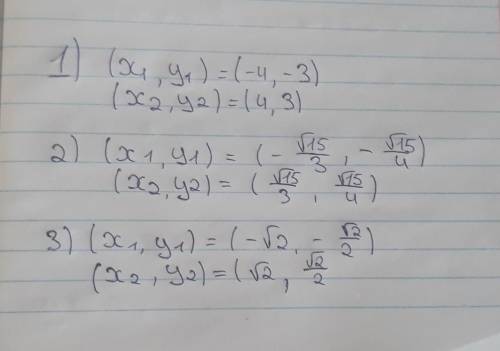 1) (x1, y1) = (-4, -3)
(x2, y2) = (4, 3)
2) (x1, y1) = (-√15/3, -√15/4)
(x2, y2) = (√15/3, √15/4)
3) (x1, y1) = (-√2, -√2/2)
(x2, y2) = (√2, √2/2